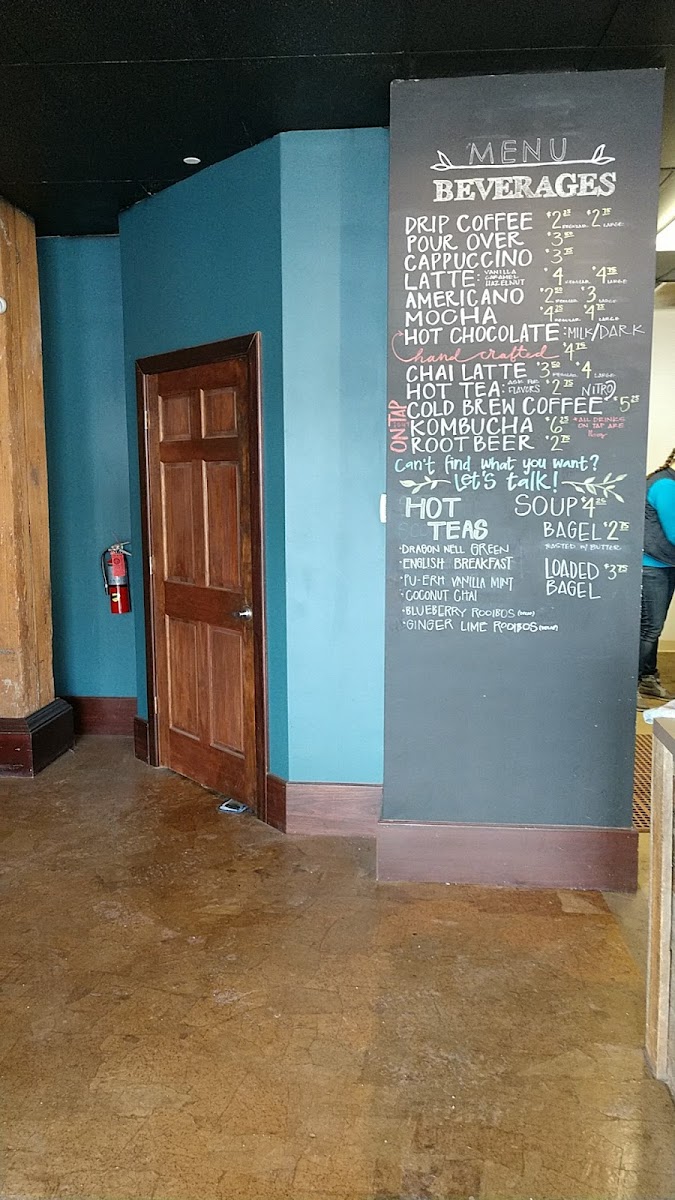 MENU
BEVERAGES
DRIP COFFEE $2 25 REGULAR $2 75 LARGE
POUR OVER $3 50
CAPPUCCINO $3 75
LATTE: VANILLA CARAMEL HAZELNUT $4 REGULAR $4 75 LARGE
AMERICANO $2 50 REGULAR $3 LARGE
MOCHA $4 25 REGULAR $4 75 LARGE
HOT CHOCOLATE: MILK/DARK
hand crafted $4 75
CHAI LATTE $3 50 REGULAR $4 LARGE
HOT TEA: ASK FOR FLAVORS $2 75 NITRO
COLD BREW COFFEE $5 25
ON TAP
KOMBUCHA $6 25 *ALL DRINKS
ROOT BEER $2 75 ON TAP ARE
Can't find what you want?
Let's talk!
HOT TEAS
·DRAGON WELL GREEN
·ENGLISH BREAKFAST
·PU-ERH VANILLA MINT
·COCONUT CHAI
·BLUEBERRY ROOIBOS
·GINGER LIME ROOIBOS
SOUP $4 25
BAGEL $2 75
TOASTED W/ BUTTER
LOADED $3 75
BAGEL